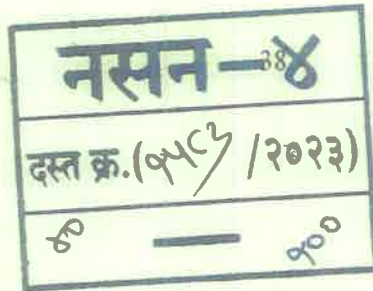 नसन-38४
दस्त क्र.(१५८३ /२०२३)
४० — १००